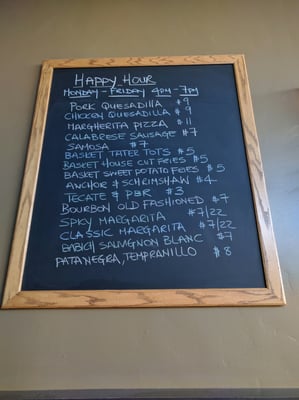 HAPPY HOUR
MONDAY - FRIDAY 4PM - 7PM
PORK QUESADILLA $9
CHICKEN QUESADILLA $9
MARGHERITA PIZZA $11
CALABRESE SAUSAGE $7
SAMOSA $7
BASKET TATER TOTS $5
BASKET HOUSE CUT FRIES $5
BASKET SWEET POTATO FRIES $5
ANCHOR & SCHRIMSHAW $4
TECATE & PBR $3
BOURBON OLD FASHIONED $7
SPICY MARGARITA $7/22
CLASSIC MARGARITA $7/22
BABICH SAUVIGNON BLANC $7
PATA NEGRA, TEMPRANILLO $8